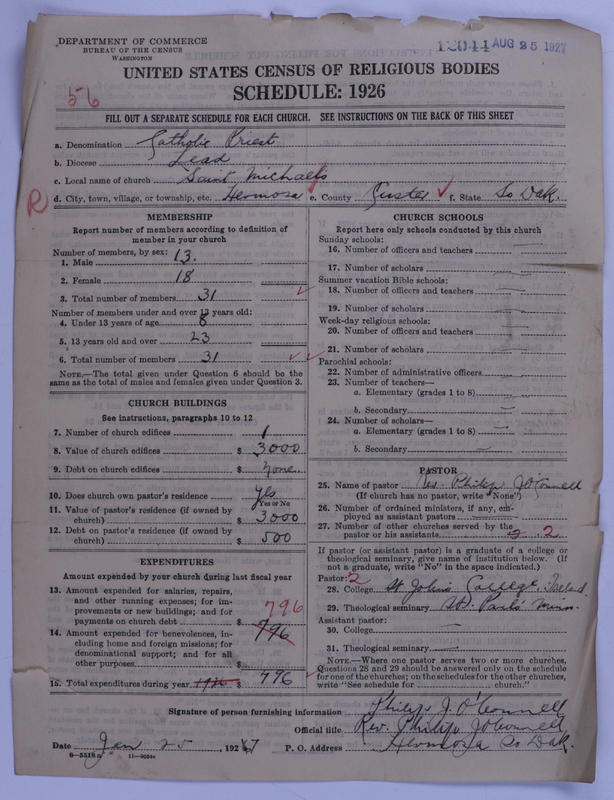 DEPARTMENT OF COMMERCE
BUREAU OF THE CENSUS
WASHINGTON
12044 AUG 25 1927
UNITED STATES CENSUS OF RELIGIOUS BODIES
SCHEDULE: 1926
56
FILL OUT A SEPARATE SCHEDULE FOR EACH CHURCH. SEE INSTRUCTIONS ON THE BACK OF THIS SHEET
a. Denomination Catholic Priest
b. Diocese Lead
c. Local name of church Saint Michaels
R d. City, town, village, or township, etc. Hermosa e. County Custer f. State So Dak.
MEMBERSHIP
Report number of members according to definition of
member in your church
Number of members, by sex:
1. Male 13.
2. Female 18
3. Total number of members 31
Number of members under and over 13 years old:
4. Under 13 years of age 8
5. 13 years old and over 23
6. Total number of members 31
NOTE.—The total given under Question 6 should be
same as the total of males and females given under Question 3.
CHURCH BUILDINGS
See instructions, paragraphs 10 to 12
7. Number of church edifices 1
8. Value of church edifices $ 3000
9. Debt on church edifices $ none
10. Does church own pastor's residence yes
Yes or No
11. Value of pastor's residence (if owned by
church) $ 3000
12. Debt on pastor's residence (if owned by
church) $ 500
EXPENDITURES
Amount expended by your church during last fiscal year
13. Amount expended for salaries, repairs,
and other running expenses; for im-
provements or new buildings; and for
payments on church debt $ 796
14. Amount expended for benevolences, in-
cluding home and foreign missions; for
denominational support; and for all
other purposes $ 796
15. Total expenditures during year $ 796
CHURCH SCHOOLS
Report here only schools conducted by this church
Sunday schools:
16. Number of officers and teachers
17. Number of scholars
Summer vacation Bible schools:
18. Number of officers and teachers
19. Number of scholars
Week-day religious schools:
20. Number of officers and teachers
21. Number of scholars
Parochial schools:
22. Number of administrative officers
23. Number of teachers—
a. Elementary (grades 1 to 8)
b. Secondary
24. Number of scholars—
a. Elementary (grades 1 to 8)
b. Secondary
PASTOR
25. Name of pastor Rev. Philip J O'Connell
(If church has no pastor, write "None")
26. Number of ordained ministers, if any, em-
ployed as assistant pastors
27. Number of other churches served by the
pastor or his assistants 2
If pastor (or assistant pastor) is a graduate of a college or
theological seminary, give name of institution below. (If
not a graduate, write "No" in the space indicated.)
Pastor: 2
28. College St Johns College, Ireland
29. Theological seminary St. Pauls Minn.
Assistant pastor:
30. College
31. Theological seminary
NOTE.—Where one pastor serves two or more churches,
Questions 28 and 29 should be answered only on the schedule
for one of the churches; on the schedules for the other churches,
write "See schedule for church."
Signature of person furnishing information Philip J. O'Connell
Official title Rev. Philip J O'Connell
Date Jan 25, 1927 P. O. Address Hermosa So Dak.
8—5518a 11—9054a